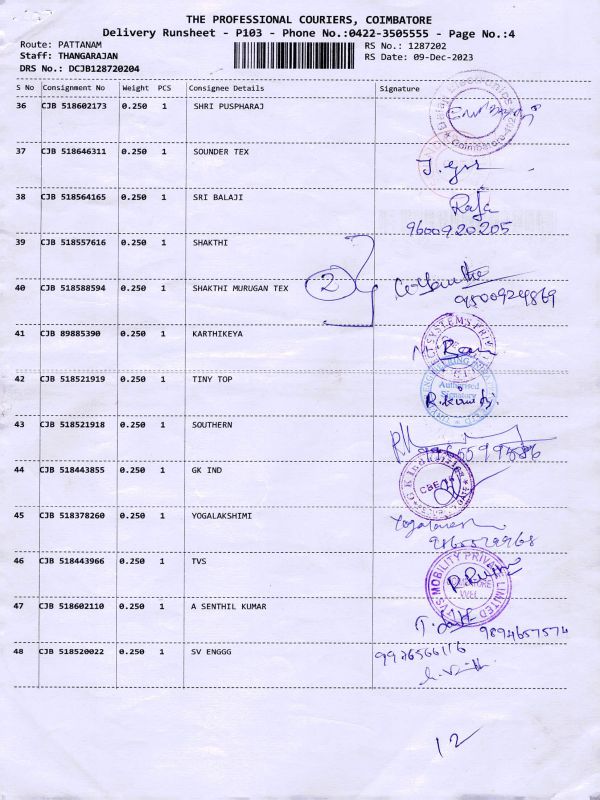 THE PROFESSIONAL COURIERS, COIMBATORE
Delivery Runsheet - P103 - Phone No.:0422-3505555 - Page No.:4
Route: PATTANAM RS No.: 1287202
Staff: THANGARAJAN RS Date: 09-Dec-2023
DRS No.: DCJB128720204
S No Consignment No Weight PCS Consignee Details Signature
36 CJB 518602173 0.250 1 SHRI PUSPHARAJ
37 CJB 518646311 0.250 1 SOUNDER TEX
38 CJB 518564165 0.250 1 SRI BALAJI Raja
9600920205
39 CJB 518557616 0.250 1 SHAKTHI
2
40 CJB 518588594 0.250 1 SHAKTHI MURUGAN TEX
9500924869
41 CJB 89885390 0.250 1 KARTHIKEYA
42 CJB 518521919 0.250 1 TINY TOP Authorised Signatory
43 CJB 518521918 0.250 1 SOUTHERN
44 CJB 518443855 0.250 1 GK IND
45 CJB 518378260 0.250 1 YOGALAKSHIMI
46 CJB 518443966 0.250 1 TVS TVS MOBILITY PRIVATE LIMITED
47 CJB 518602110 0.250 1 A SENTHIL KUMAR 9894657574
48 CJB 518520022 0.250 1 SV ENGGG
12